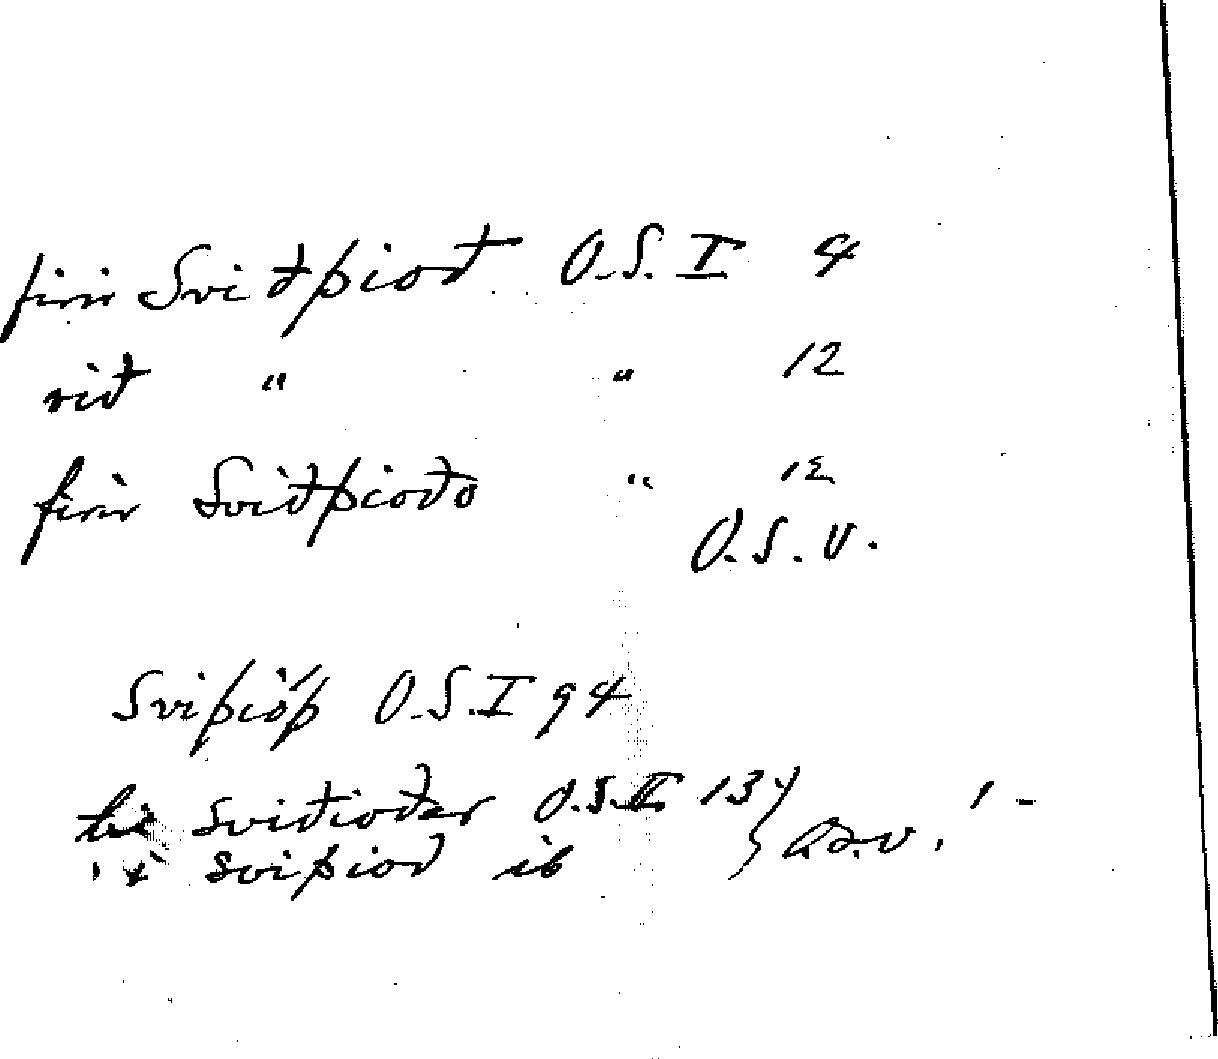 firir Sviđþiođ O.S. I 4
við " " 12
firir Sviđþiođo " 12
O.S.V.
Sviþióþ O.S. I 94
til Sviđiođar O.S. II 137
i Sviþiođ ib } O.S.V.